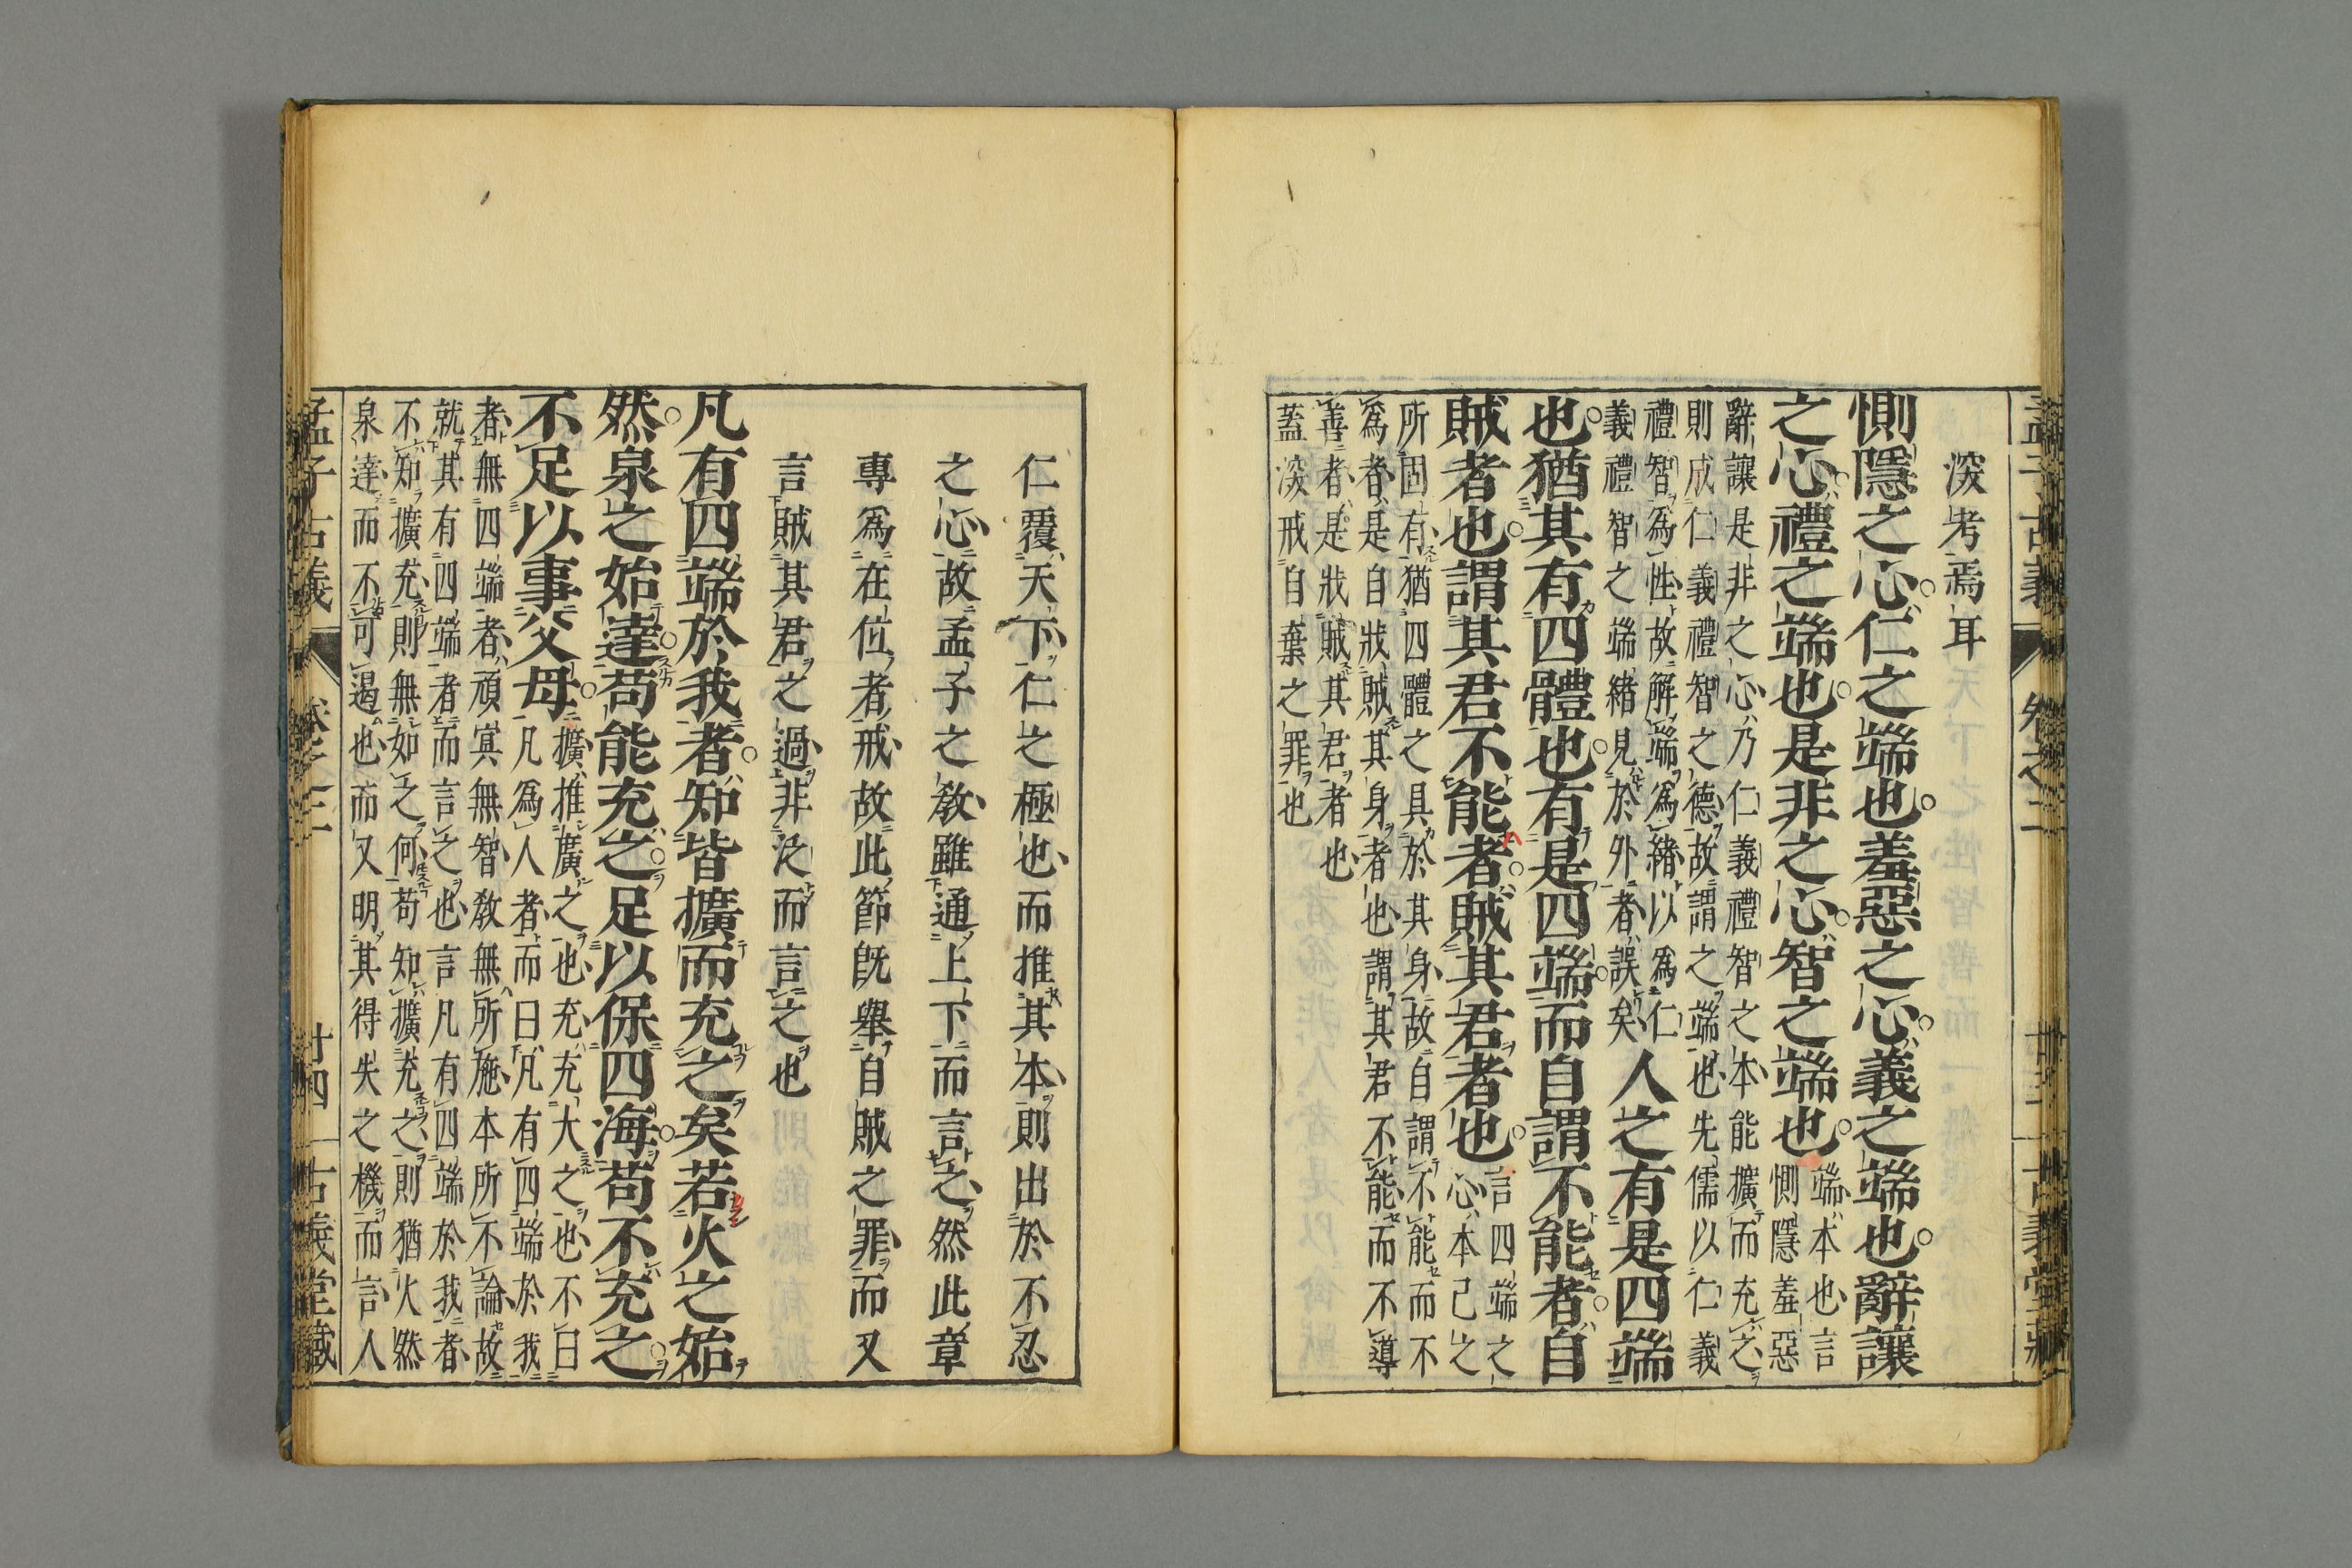 孟子古義 卷之二 廿三 古義堂藏
深考焉耳
惻隱之心仁之端也羞惡之心義之端也辭讓
之心禮之端也是非之心智之端也
端本也言
惻隱羞惡
辭讓是非之心乃仁義禮智之本能擴而充之
則成仁義禮智之德故謂之端也先儒以仁義
禮智爲性故解端爲緒以爲仁
義禮智之端緒見於外者誤矣
人之有是四端
也猶其有四體也有是四端而自謂不能者自
賊者也謂其君不能者賊其君者也
言四端之
心本己之
所固有猶四體之具於其身故自謂不能而不
爲者是自戕賊其身者也謂其君不能而不導
善者是戕賊其君者也
蓋深戒自棄之罪也
仁覆天下仁之極也而推其本則出於不忍
之心故孟子之敎雖通上下而言之然此章
專爲在位者戒故此節既舉自賊之罪而又
言賊其君之過非泛而言之也
凡有四端於我者知皆擴而充之矣若火之始
然泉之始達苟能充之足以保四海苟不充之
不足以事父母
擴推廣之也充充大之也不曰
凡爲人者而曰凡有四端於我
者無四端者頑冥無智敎無所施本所不論故
就其有四端者而言之也言凡有四端於我者
不知擴充則無如之何苟知擴充之則猶火然
泉達而不可遏也而又明其得失之機而言人
孟子古義 卷之二 廿四 古義堂藏